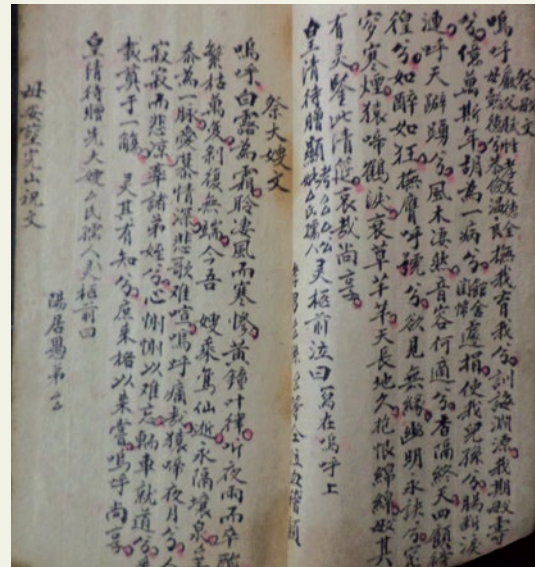 祭母文
嗚呼嚴父賦性孝友德全
母彰德分恭儉溫良撫我育我兮訓誨潤澤我期母壽
兮億萬斯年胡為一病兮館舍遽捐使我兒孫兮腸斷淚
漣呼天擗踴兮風木淒然音容何適兮杳隔終天四顧徬
徨兮如醉如狂撫膺呼號兮欲見無緣幽明永訣兮窀
穸寒煙猿啼鶴淚衰草芊芊天長地久抱恨綿綿母其
有灵鑒此清筵哀哉尚享
皇清待贈顯考公么公灵柩前泣曰 寫在嗚呼上
妣么氏孺人
祭大嫂文
嗚呼白露為霜聆淒風而寒慘黃鐘叶律听夜雨而辛酸
繁枯萬変剝復無歸今吾 嫂乘鸞仙逝永隔壤泉么
忝為一脉愛慕情深悲歌难喧嗚呼痛哉猿啼夜月兮
寂寂而悲凉率諸弟姪兮心惻惻以难忘輀車就道兮
載奠于一觴 灵其有知兮庶來格以來嘗嗚呼尚享
皇清待贈先大嫂么氏孺人灵柩前曰
陽居愚弟么么
母安塟完山祝文